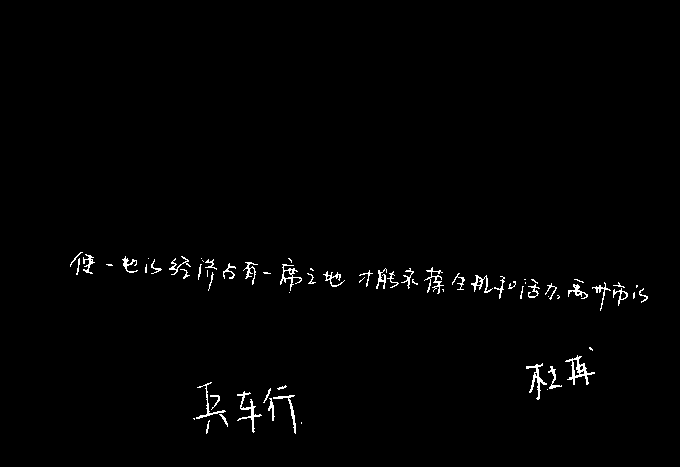 使一地的经济占有一席之地 才能永葆生机和活力 离州市的
兵车行
杜甫